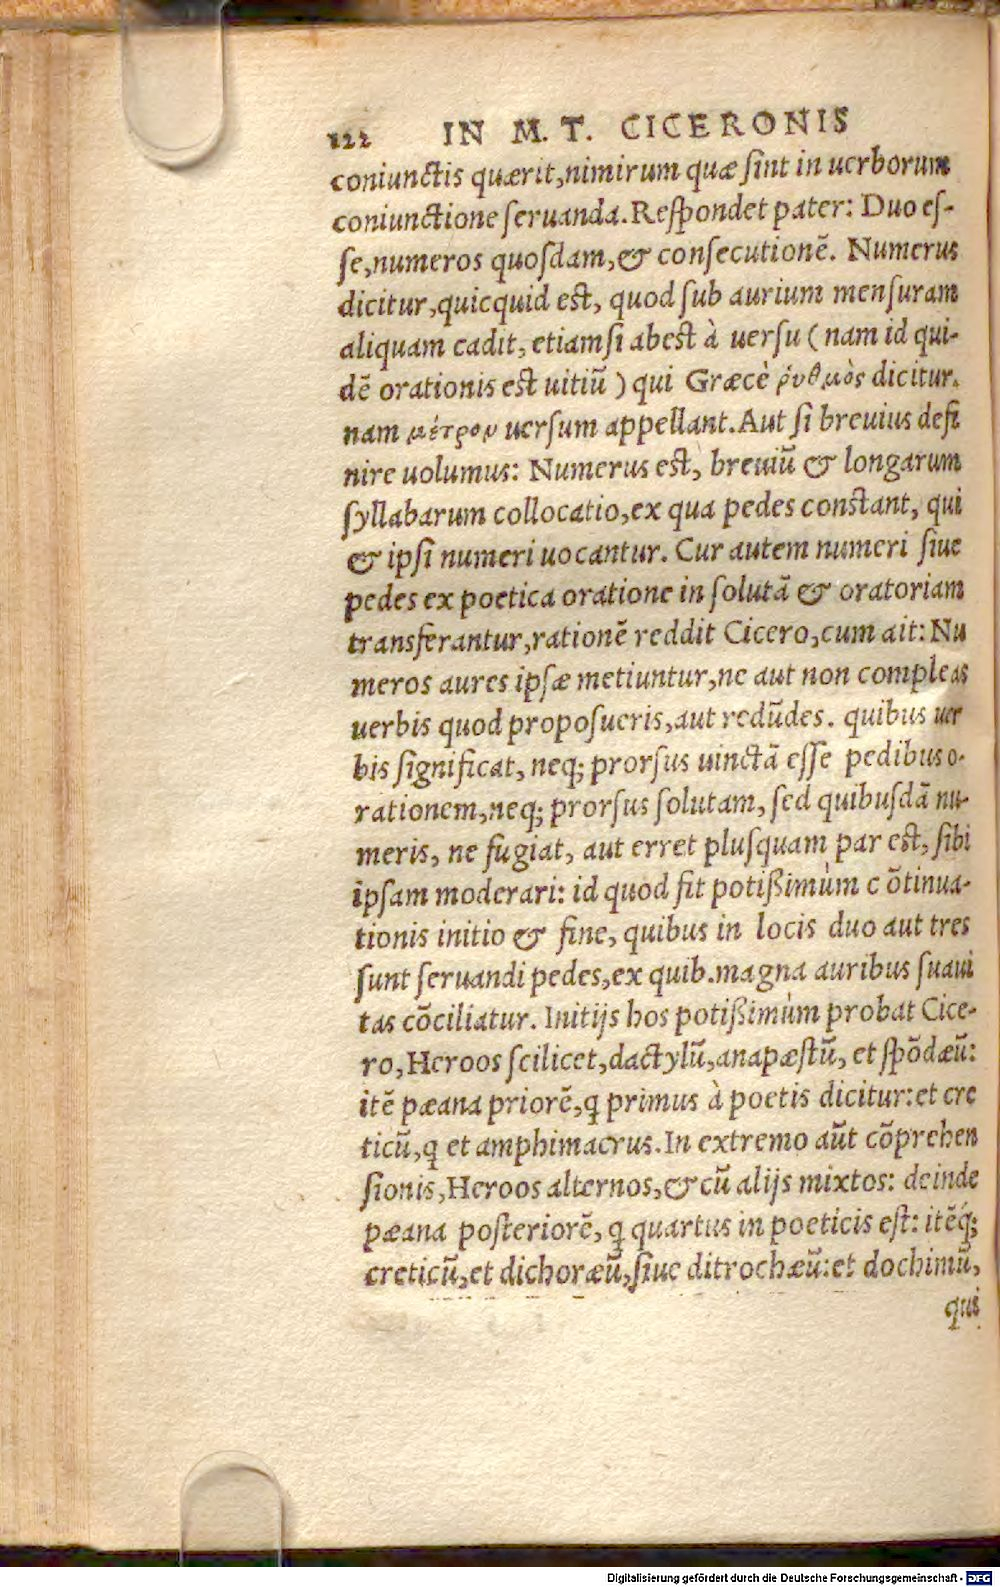 122 IN M. T. CICERONIS
coniunctis quærit,nimirum quæ ſint in uerborum
coniunctione ſeruanda.Reſpondet pater: Duo eſ-
ſe,numeros quoſdam,& conſecutionē. Numerus
dicitur,quicquid eſt, quod ſub aurium menſuram
aliquam cadit, etiamſi abest à uerſu (nam id qui-
dē orationis est uitiū ) qui Græcè ῥυθμὸς dicitur.
nam μέτρον uerſum appellant.Aut ſi breuius defi
nire uolumus: Numerus est, breuiū & longarum
ſyllabarum collocatio,ex qua pedes constant, qui
& ipſi numeri uocantur. Cur autem numeri ſiue
pedes ex poetica oratione in ſolutā & oratoriam
transferantur,rationē reddit Cicero,cum ait: Nu
meros aures ipſæ metiuntur,ne aut non compleas
uerbis quod propoſueris,aut redūdes. quibus uer
bis ſignificat, neq; prorſus uinctā eſſe pedibus o-
rationem,neq; prorſus ſolutam, ſed quibuſdā nu-
meris, ne fugiat, aut erret pluſquam par est, ſibi
ipſam moderari: id quod fit potißimùm cōtinua-
tionis initio & fine, quibus in locis duo aut tres
ſunt ſeruandi pedes,ex quib.magna auribus ſuaui
tas cōciliatur. Initijs hos potißimùm probat Cice-
ro,Heroos ſcilicet,dactylū,anapæstū, et ſpōdæū:
itē pæana priorē,q̨ primus à poetis dicitur:et cre
ticū,q̨ et amphimacrus.In extremo aūt cōprehen
ſionis,Heroos alternos,& cū alijs mixtos: deinde
pæana posteriorē, q̨ quartus in poeticis est: itēq́;
creticū,et dichoræū,ſiue ditrochæū:et dochimū,
qui
Digitalisierung gefördert durch die Deutsche Forschungsgemeinschaft - DFG